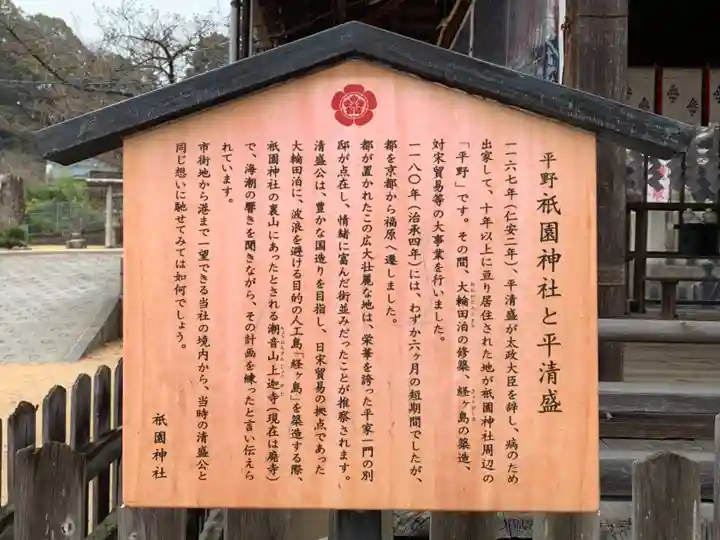 平野祇園神社と平清盛
一一六七年（仁安二年）、平清盛が太政大臣を辞し、病のため
出家して、十年以上に亘り居住された地が祇園神社周辺の
「平野」です。その間、大輪田泊の修築、経ヶ島の築造、
対宋貿易等の大事業を行いました。
一一八〇年（治承四年）には、わずか六ヶ月の短期間でしたが、
都を京都から福原へ遷しました。
都が置かれたこの広大壮麗な地は、栄華を誇った平家一門の別
邸が点在し、情緒に富んだ街並みだったことが推察されます。
清盛公は、豊かな国造りを目指し、日宋貿易の拠点であった
大輪田泊に、波浪を避ける目的の人工島「経ヶ島」を築造する際、
祇園神社の裏山にあったとされる潮音山上迦寺（現在は廃寺）
で、海潮の響きを聞きながら、その計画を練ったと言い伝えら
れています。
市街地から港まで一望できる当社の境内から、当時の清盛公と
同じ想いに馳せてみては如何でしょう。
祇園神社